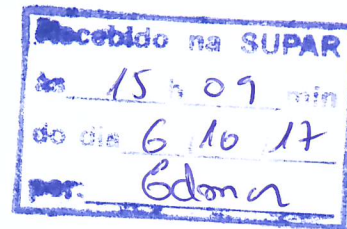 Recebido na SUPAR
às 15 h 09 min
do dia 6 10 17
por: Edmar